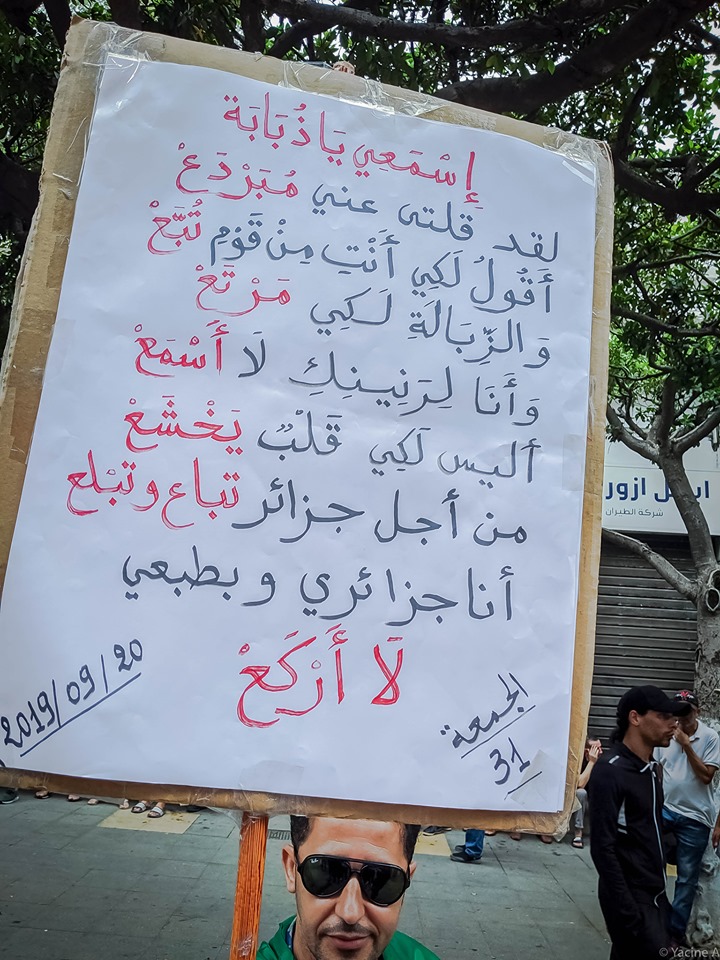 إِسْمَعِي يَا ذُبَابَة
لقد قلتى عني مُبَرْدَعْ
أَقُولُ لَكِي أَنْتِ مِنْ قَوْمِ تُبَّعْ
وَ الزِّبَالَةِ لَكِي مَرْتَعْ
وَأَنَا لِرَنِينِكِ لَا أَسْمَعْ
أليس لَكِي قَلْبٌ يَخْشَعْ
من أجل جزائر تباع وتبْلع
أنا جزائري و بطبعي
لَا أَرْكَعْ
2019/09/20
الجمعة
31
شركة الطيران
© Yacine A